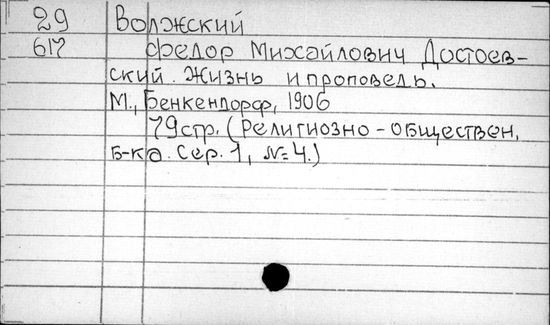 29 Волжский
617 Федор Михайлович Достоев-
ский. Жизнь и проповедь.
М., Бенкендорф, 1906
79 стр. (Религиозно-обществен.
б-ка. Сер. 1, №4.)